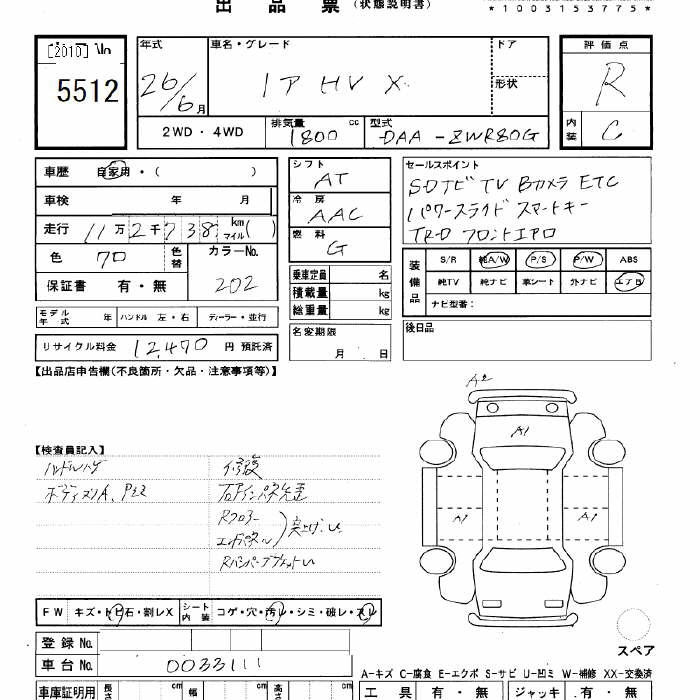 出品票(状態説明書)
*1003153775*
[2010] No
5512
年式 26/6月
車名・グレード ドア 形状
評価点 R
内装 C
2WD・4WD
排気量 1800 cc
型式 DAA-ZWR80G
車歴 自家用・( )
車検 年 月
走行 11万2千738 km マイル( )
色 クロ 色替
カラーNo. 202
保証書 有・無
シフト AT
冷房 AAC
燃料 G
乗車定員 名
積載量 kg
総重量 kg
名変期限 月 日
セールスポイント
SDナビ TV Bカメラ ETC
パワースライド スマートキー
TRD フロントエアロ
装備品 S/R 純A/W P/S P/W ABS
純TV 純ナビ 革シート 外ナビ エアロ
ナビ型番:
後日品
モデル年式 年 ハンドル 左・右 ディーラー・並行
リサイクル料金 12,470 円 預託済
【出品店申告欄(不良箇所・欠品・注意事項等)】
【検査員記入】
A2
A1
A1 A1
FW キズ・トビ石・割レX シート内装 コゲ・穴・汚レ・シミ・破レ・スレ
登録No.
車台No. 0033111
スペア
A-キズ C-腐食 E-エクボ S-サビ U-凹ミ W-補修 XX-交換済
車庫証明用 長さ cm 幅 cm 高さ cm
工具 有・無 ジャッキ 有・無